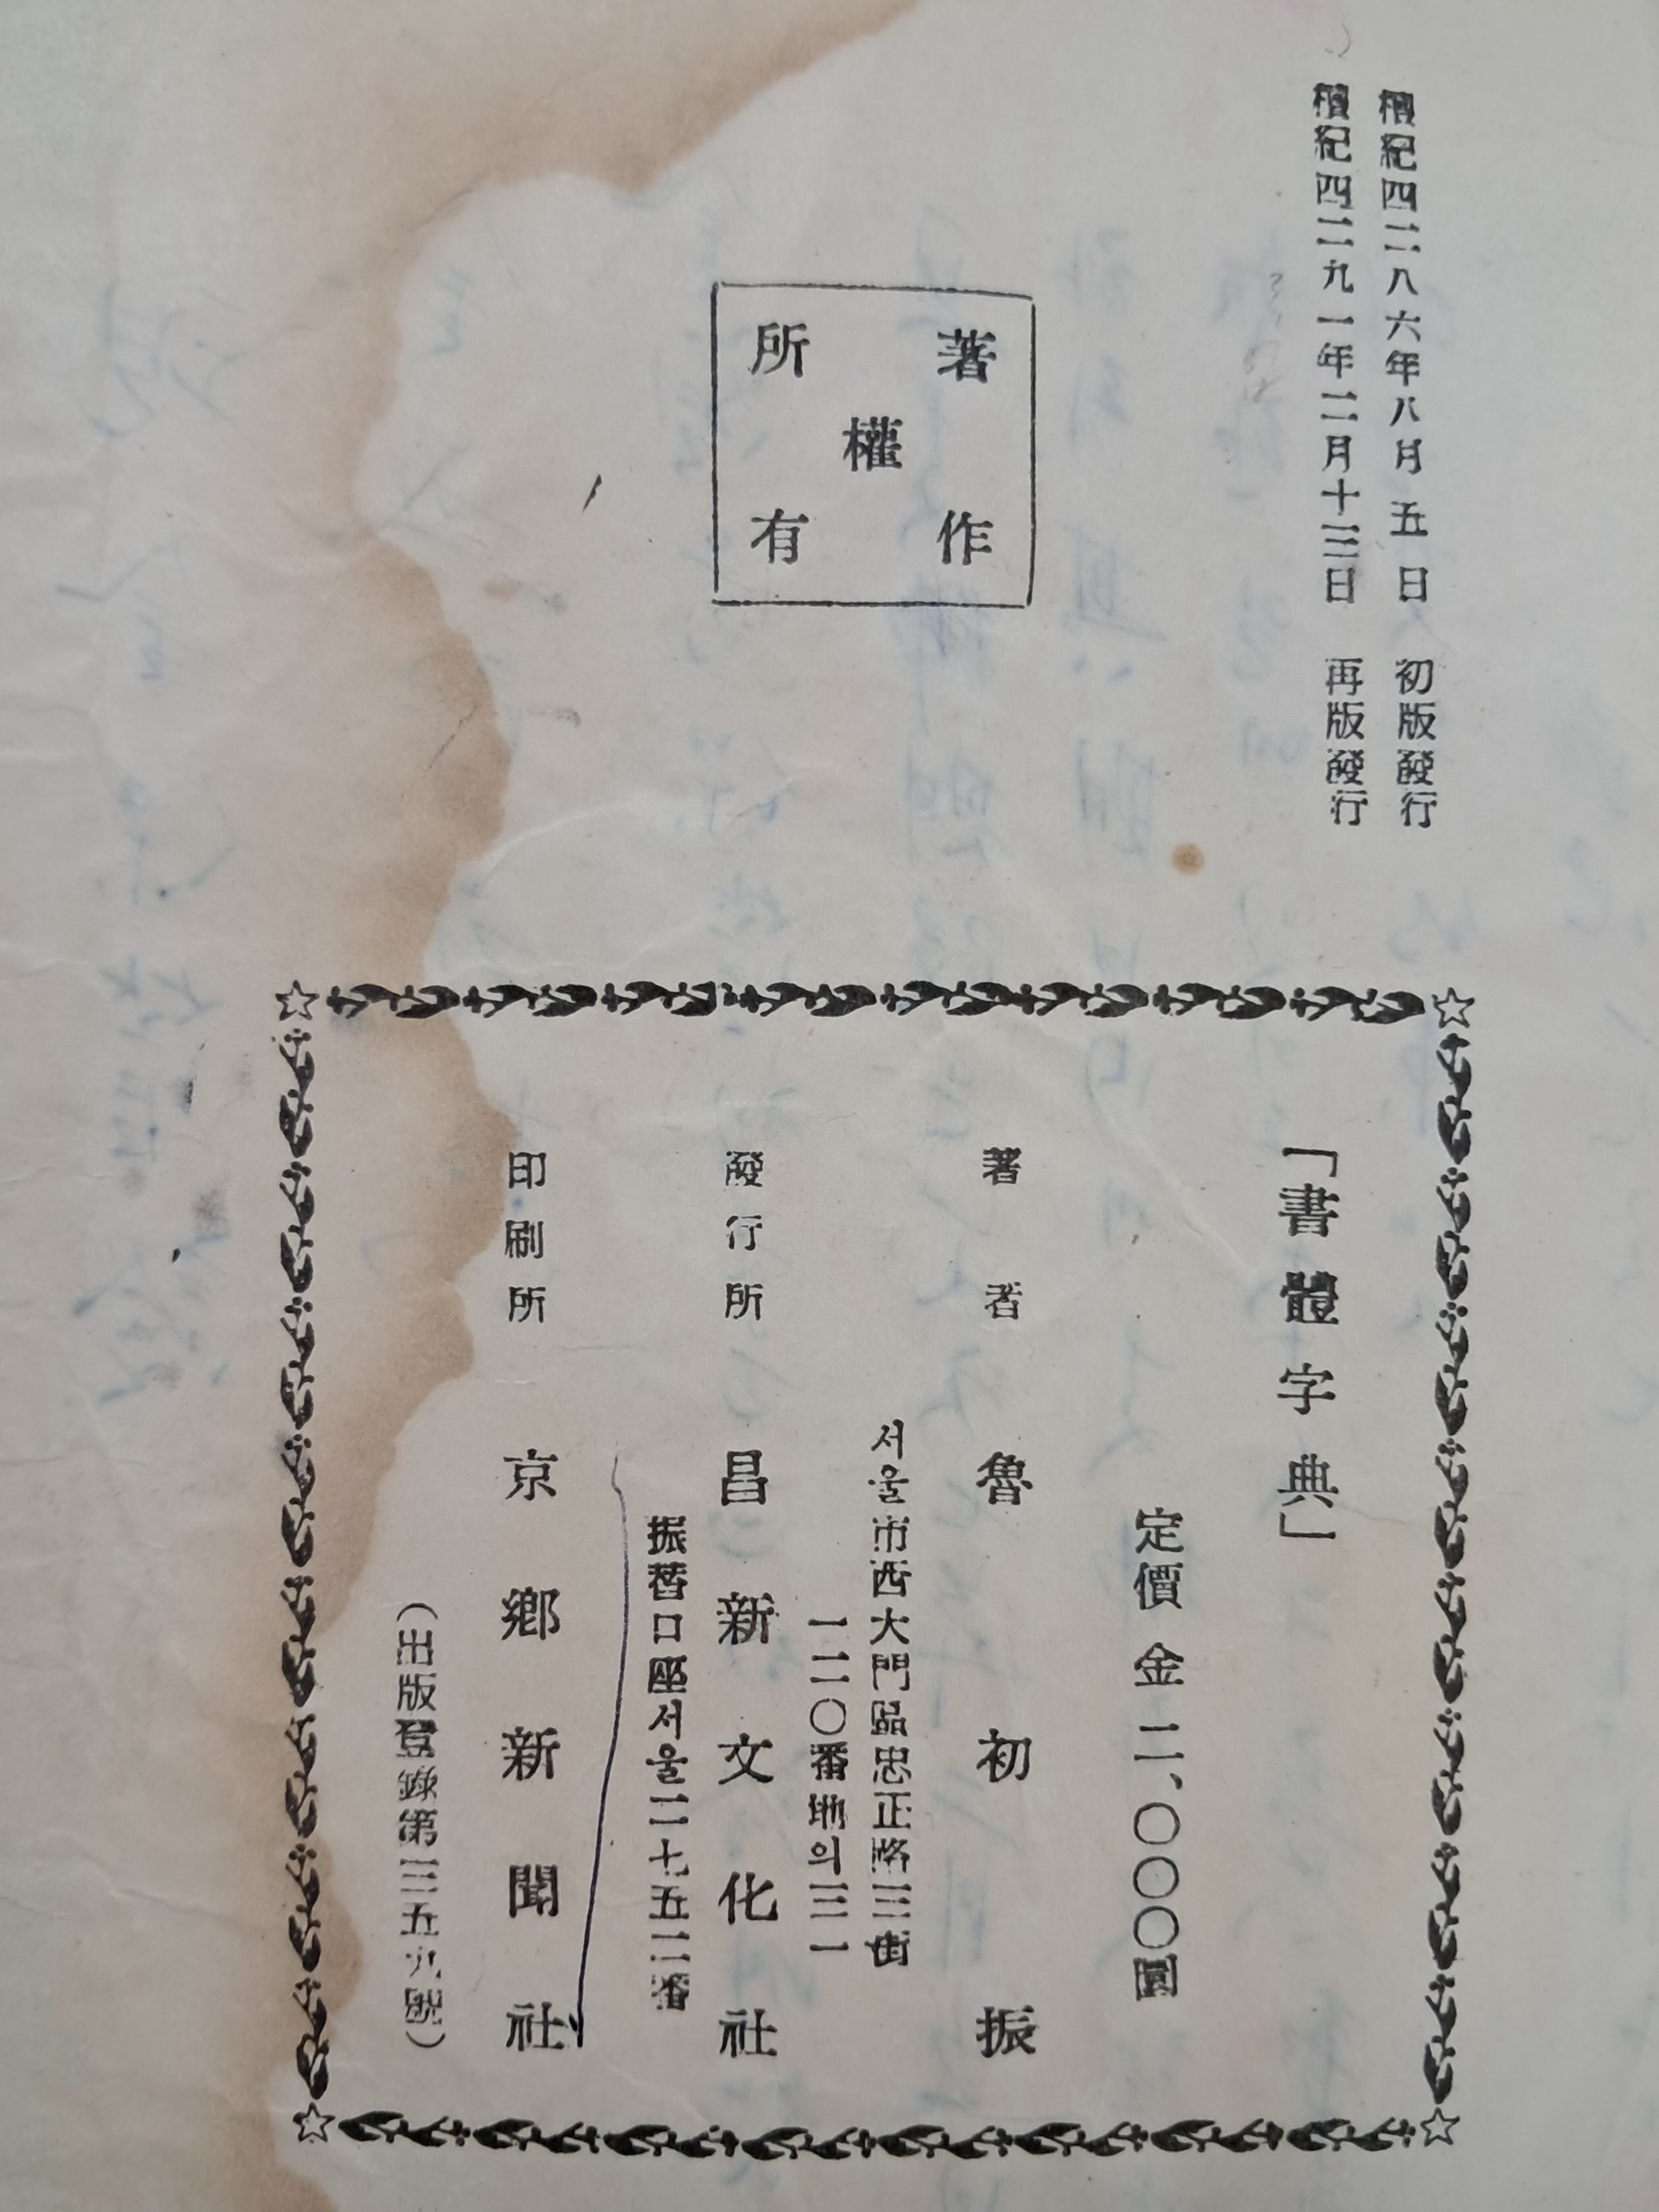 檀紀四二八六年八月五日 初版發行
檀紀四二九一年二月十三日 再版發行
著作
權
所有
「書體字典」
定價 金 二、〇〇〇圓
著者 魯初振
서울市西大門區忠正路三街
一二〇番地의三一
發行所 昌新文化社
振替口座서울二七五二番
印刷所 京鄕新聞社
(出版登錄第三五九號)